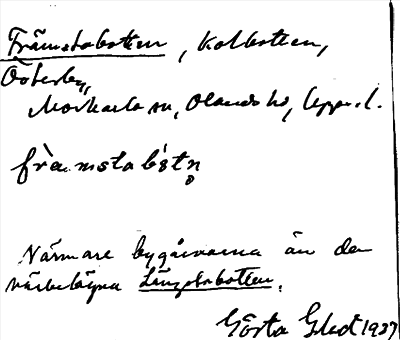 Främstabotten, Kolbotten,
Österby,
Morkarla sn, Olands hd, Upps. l.
frä̀mstabòtn̥
Närmare bygårdarna än den
närbelägna Längstabotten.
Gösta 1927